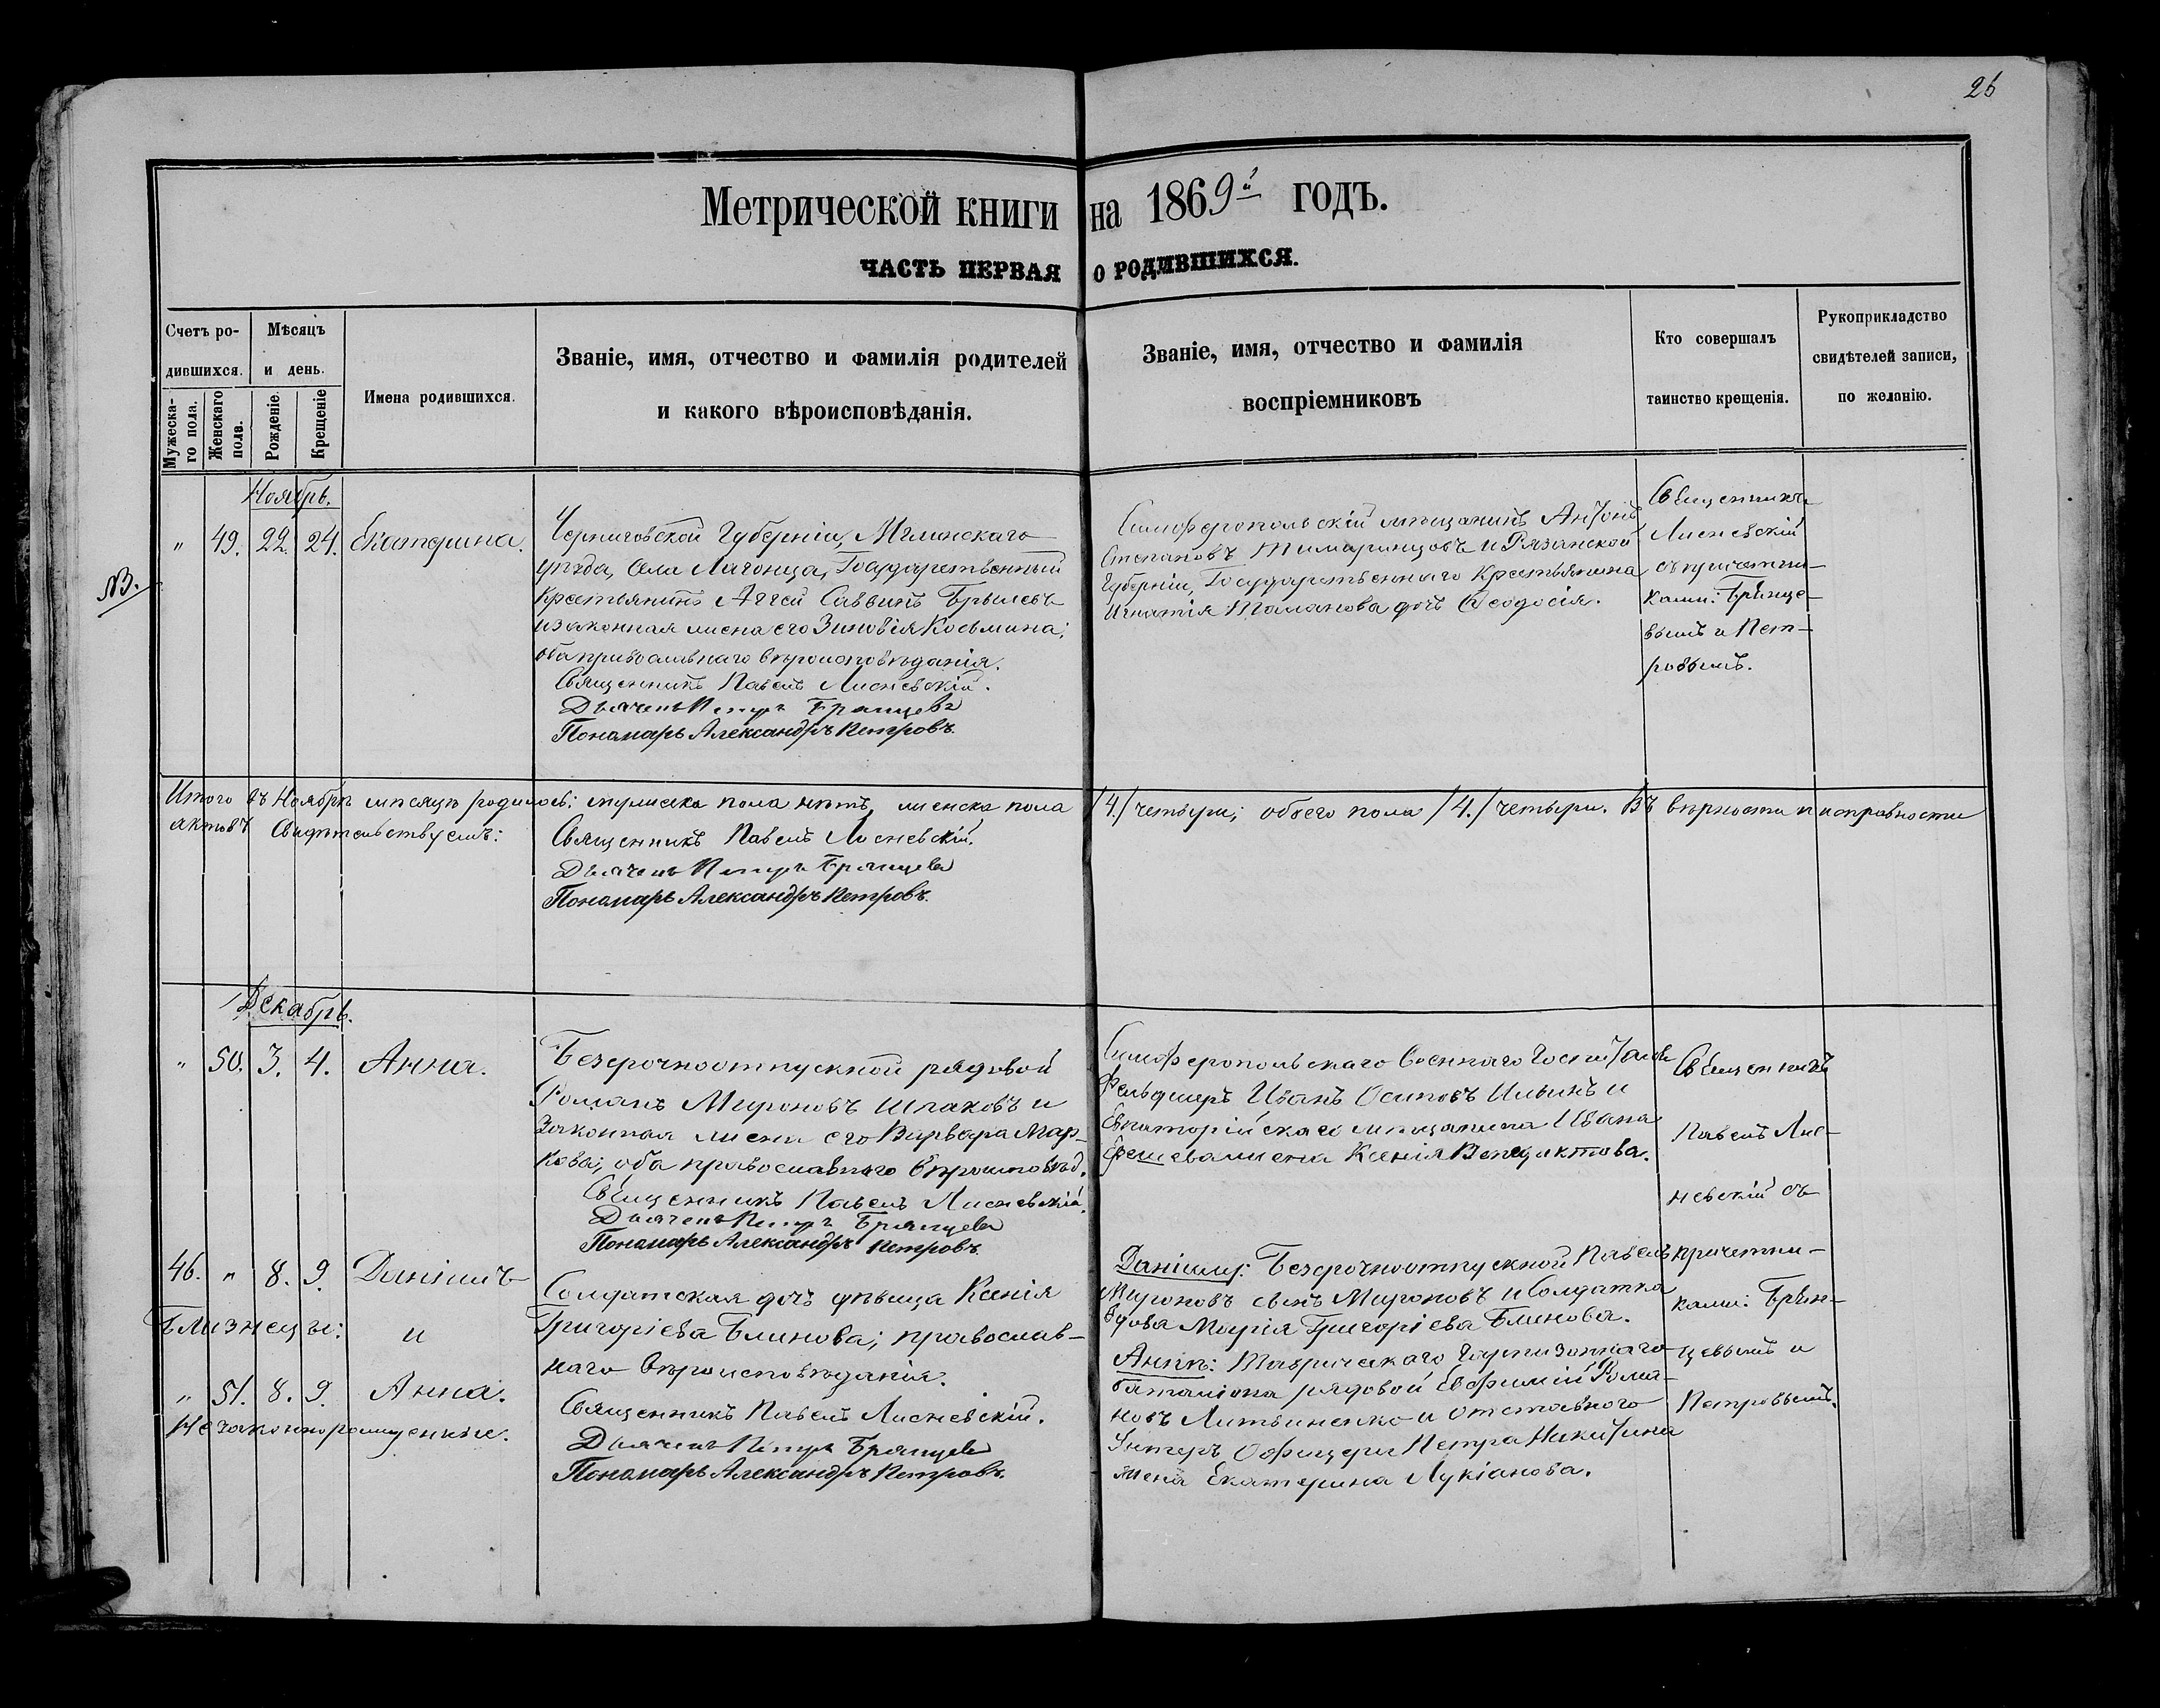 26
Метрической книги на 1869й годъ.
ЧАСТЬ ПЕРВАЯ О РОДИВШИХСЯ.
Счетъ ро-
дившихся.
Мѣсяцъ
и день.
Мужеска-
го пола.
Женскаго
пола.
Рожденіе.
Крещеніе
Имена родившихся.
Званіе, имя, отчество и фамилія родителей
и какого вѣроисповѣданія.
Званіе, имя, отчество и фамилія
воспріемниковъ
Кто совершалъ
таинство крещенія.
Рукоприкладство
свидѣтелей записи,
по желанію.
Ноябрь.
NB.
" 49. 22. 24. Екатерина.
Черниговской Губерніи, Мглинскаго
уѣзда, Села Государственный
Крестьянинъ Аггей Саввинъ Брылевъ
и законная жена его Зиновія Косьмина;
оба православнаго вѣроисповѣданія.
Священникъ Павелъ Лисневскій.
Дьячекъ Петръ Брянцевъ
Пономарь Александръ Петровъ.
Симферопольскій мѣщанинъ Антонъ
Степановъ и Рязанской
Губерніи, Государственнаго Крестьянина
Игнатія Таланова дочь Ѳеодосія.
Священникъ
Лисневскій
съ причетни-
ками: Брянце-
вымъ и Пет-
ровымъ.
Итого въ Ноябрѣ мѣсяцѣ родилось: мужеска пола нѣтъ, женска пола /4./ четыри; обоего пола /4./ четыри. Въ вѣрности и исправности
актовъ Свидѣтельствуемъ:
Священникъ Павелъ Лисневскій.
Дьячекъ Петръ Брянцевъ
Пономарь Александръ Петровъ.
Декабрь.
" 50. 3. 4. Анна.
Безсрочноотпускной рядовой
Романъ Мироновъ Шлаковъ и
Законная жена его Варвара Мар-
кова; оба православнаго вѣроисповѣд.
Священникъ Павелъ Лисневскій.
Дьячекъ Петръ Брянцевъ
Пономарь Александръ Петровъ.
Симферопольскаго Военнаго Госпиталя
Фельдшеръ Иванъ Осиповъ Ильинъ и
Евпаторійскаго мѣщанина Ивана
жена Ксенія Венедиктова.
Священникъ
Павелъ Лис-
невскій съ
причетни-
ками: Брян-
цевымъ и
Петровымъ.
46. " 8. 9. Даніилъ
Близнецы: и
" 51. 8. 9. Анна.
Незаконнорожденные.
Солдатская дочь дѣвица Ксенія
Григоріева Блинова; православ-
наго вѣроисповѣданія.
Священникъ Павелъ Лисневскій.
Дьячекъ Петръ Брянцевъ
Пономарь Александръ Петровъ.
Даніилу: Безсрочноотпускной Павелъ
Мироновъ сынъ Мироновъ и Солдатка
вдова Марія Григоріева Блинова.
Аннѣ: Таврическаго Гарнизоннаго
баталіона рядовой Евфимій Рома-
новъ Литвиненко и отставнаго
Унтеръ Офицера Петра Никитина
жена Екатерина Лукіанова.